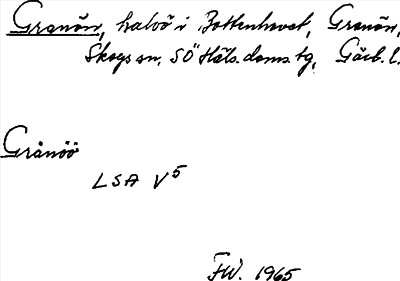 Granön, halvö i Bottenhavet, Granön,
Skogs sn, SÖ Häls. doms. tg, Gävl. l.
Gränöö
LSA V5
F.W. 1965